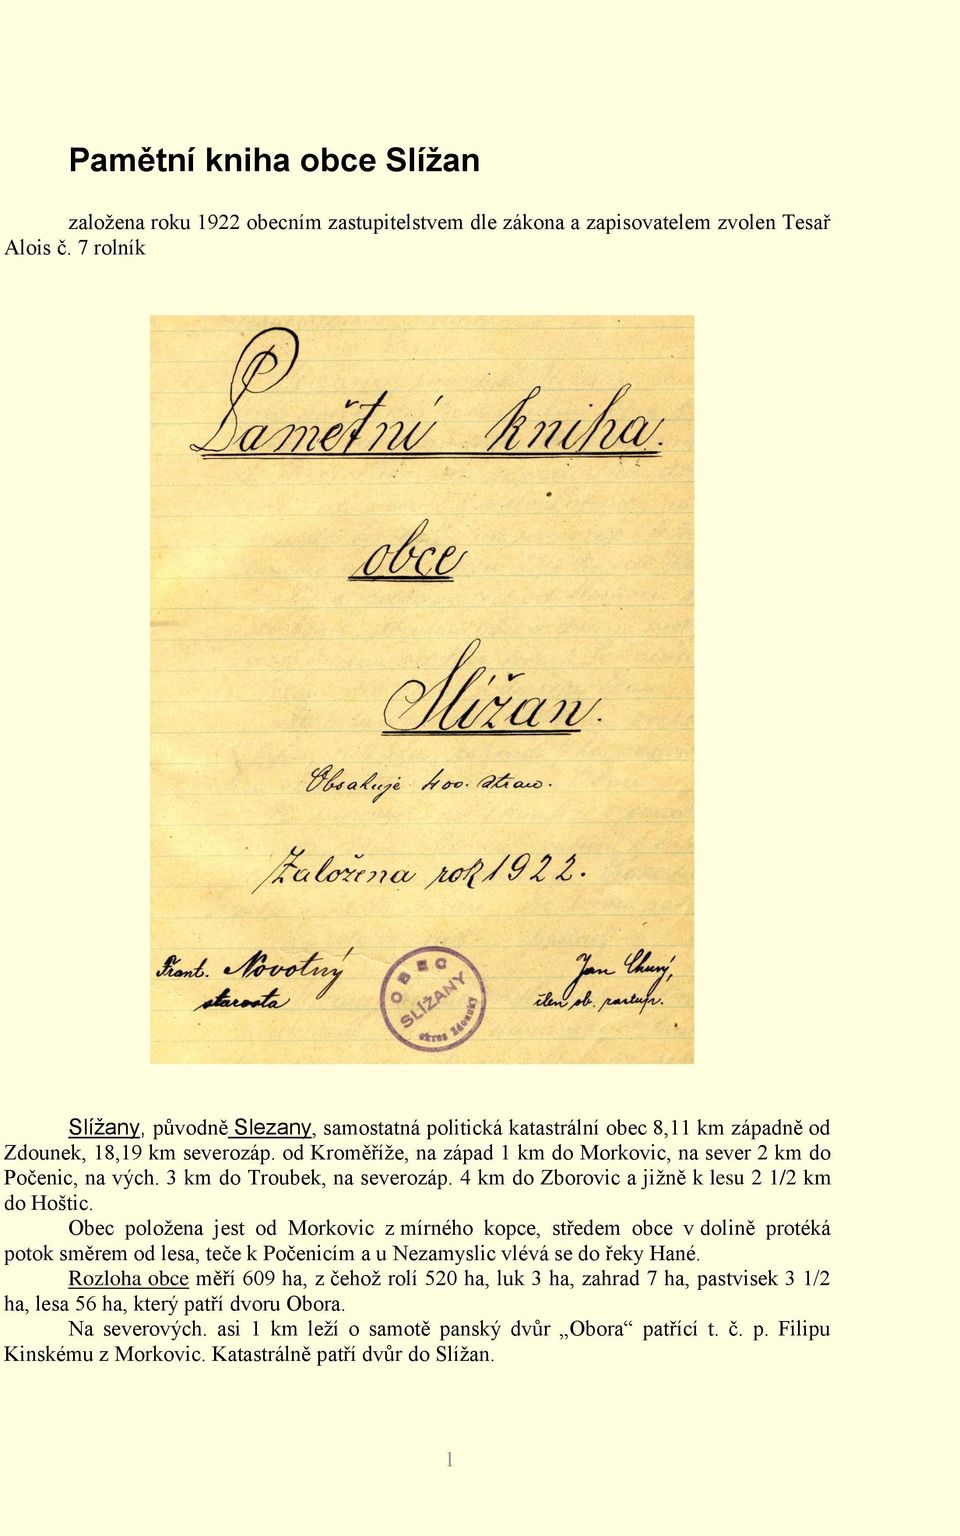 Pamětní kniha obce Slížan
založena roku 1922 obecním zastupitelstvem dle zákona a zapisovatelem zvolen Tesař
Alois č. 7 rolník
Pamětní kniha.
obce
Slížan.
Obsahuje 400. stran.
Založena rok 1922.
Frant. Novotný
starosta
OBEC
SLÍŽANY
okres Zdounky
Jan Chury,
člen ob. zastup.
Slížany, původně Slezany, samostatná politická katastrální obec 8,11 km západně od
Zdounek, 18,19 km severozáp. od Kroměříže, na západ 1 km do Morkovic, na sever 2 km do
Počenic, na vých. 3 km do Troubek, na severozáp. 4 km do Zborovic a jižně k lesu 2 1/2 km
do Hoštic.
Obec položena jest od Morkovic z mírného kopce, středem obce v dolině protéká
potok směrem od lesa, teče k Počenicím a u Nezamyslic vlévá se do řeky Hané.
Rozloha obce měří 609 ha, z čehož rolí 520 ha, luk 3 ha, zahrad 7 ha, pastvisek 3 1/2
ha, lesa 56 ha, který patří dvoru Obora.
Na severových. asi 1 km leží o samotě panský dvůr „Obora“ patřící t. č. p. Filipu
Kinskému z Morkovic. Katastrálně patří dvůr do Slížan.
1